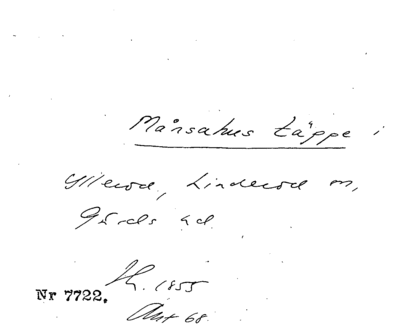 Månsahus täppe i
Yllerod, Linderod sn,
Gärds hd.
Nr 7722.
1855
Akt 68.